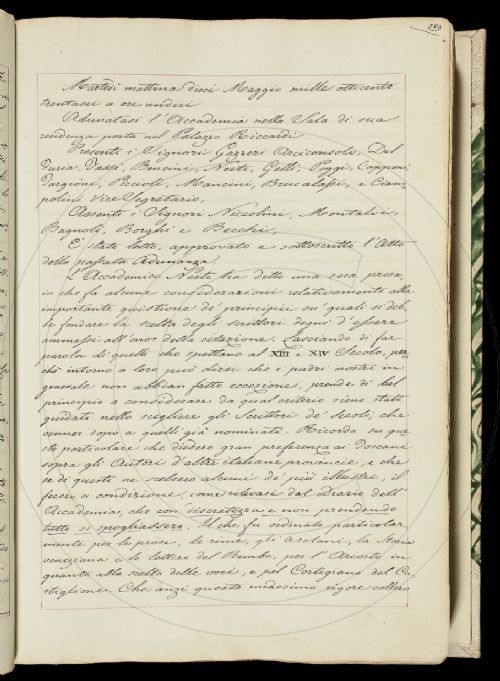 389
Martedì mattina dieci Maggio mille ottocento
trentasei a ore undici
Adunatasi l'Accademia nella Sala di sua
residenza posta nel Palazzo Riccardi
Presenti i Signori Gazzeri Arciconsolo, Del
Furia, Tassi, Bencini, Nesti, Gelli, Poggi, Capponi,
Targioni, Piccioli, Mancini, Brucalassi, e Ciam-
polini Vice Segretario,
Assenti i Signori Niccolini, Montalvi,
Bagnoli, Borghi e Becchi,
E' stato letto, approvato e sottoscritto l'Atto
della passata Adunanza.
L'Accademico Nesti ha detto una sua prosa,
in che fa alcune considerazioni relativamente alla
importante quistione de' principii su' quali si deb-
be fondare la scelta degli scrittori degni d'essere
ammessi all'onor della citazione. Lasciando di far
parola di quelli che spettano al XIII e XIV Secolo, per
chè intorno a loro può dirsi che i padri nostri in
generale non abbian fatto eccezione, prende di bel
principio a considerare da qual criterio sieno stati
guidati nello scegliere gli Scrittori de' secoli, che
venner dopo a quelli già nominati. Ricorda su que
sto particolare che diedero gran preferenza ai Toscani
sopra gli Autori d'altre italiane provincie, e che
se di questi ne scelsero alcuni de' più illustri, il
fecero a condizione, come rilevasi dal Diario dell'
Accademia, che con discretezza e non prendendo
tutto si spogliassero. Il che fu ordinato particolar
mente per le prose, le rime, gli Asolani, la Storia
veneziana e le lettere del Bembo, per l'Ariosto in
quanto alla scelta delle voci, e pel Cortegiano del Ca-
stiglione. Che anzi questo medesimo rigore vollero